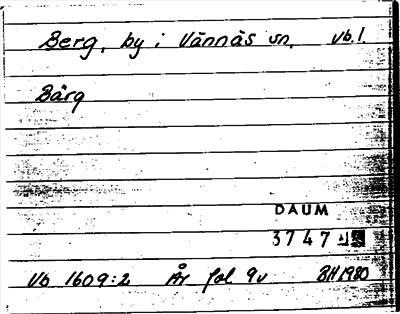 Berg, by i Vännäs sn. Vb.l.
Bärg
DAUM
3747
Vb 1609:2 År fol 9v BH 1980